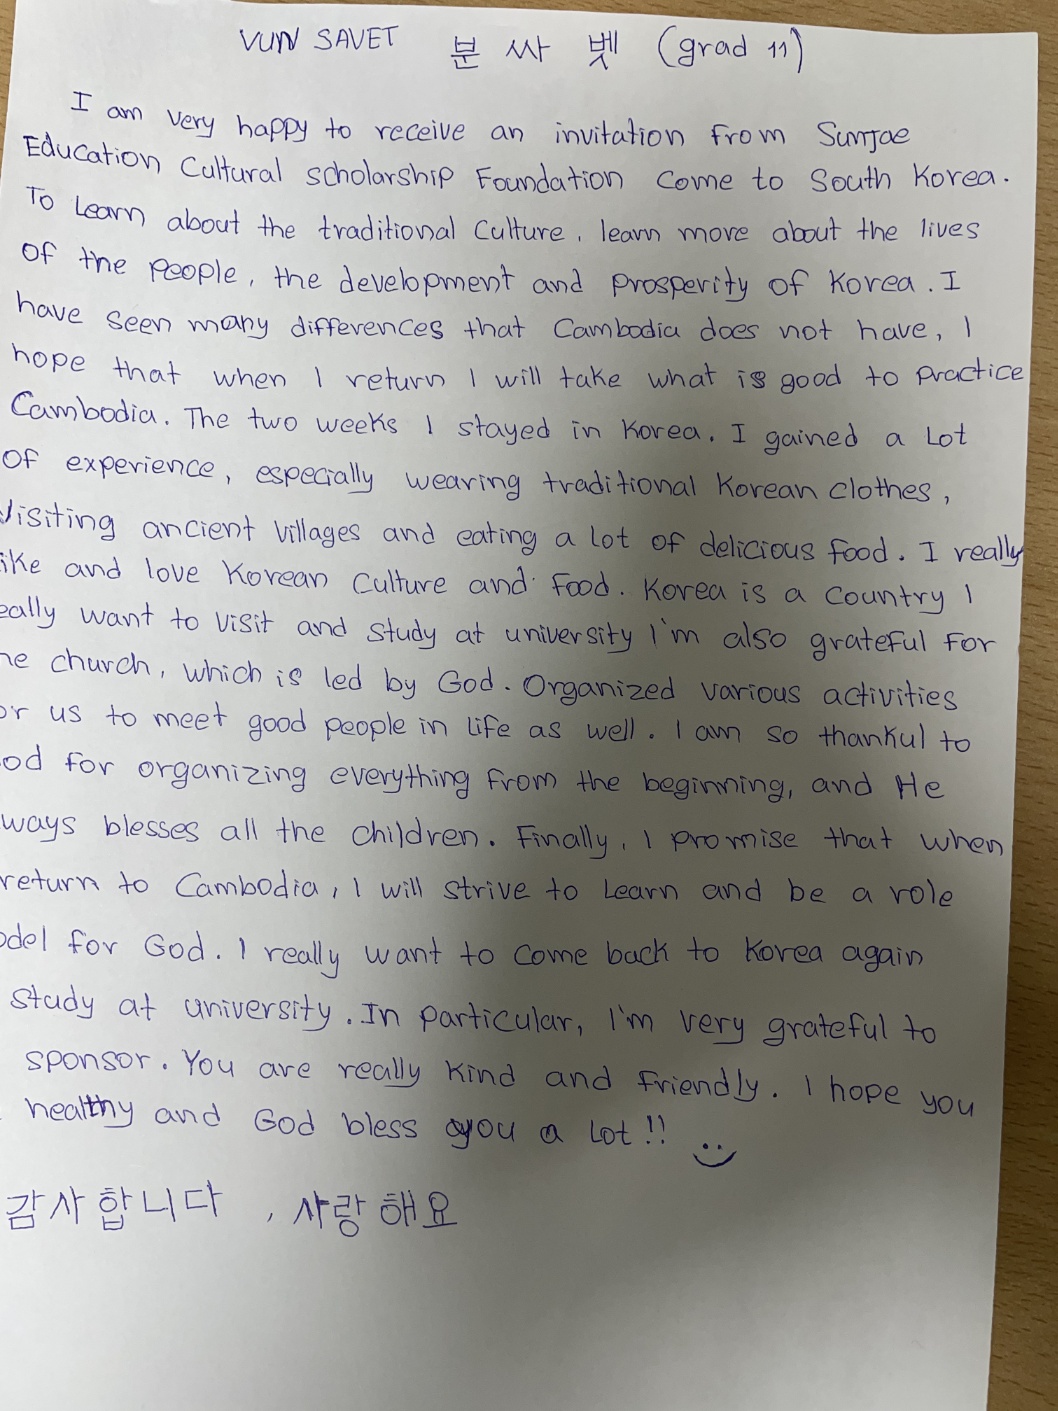 VUN SAVET 분 싸 벳 (grad 11)
I am very happy to receive an invitation from Sunjae
Education Cultural scholarship Foundation come to South Korea.
To Learn about the traditional Culture, learn more about the lives
of the people, the development and prosperity of Korea. I
have seen many differences that Cambodia does not have, I
hope that when I return I will take what is good to practice
Cambodia. The two weeks I stayed in Korea. I gained a Lot
of experience, especially wearing traditional Korean clothes,
Visiting ancient Villages and eating a lot of delicious food. I really
ike and love Korean Culture and Food. Korea is a country I
eally want to visit and study at university I'm also grateful for
he church, which is led by God. Organized various activities
or us to meet good people in life as well. I am so thankul to
od for organizing everything from the beginning, and He
ways blesses all the children. Finally, I promise that when
return to Cambodia, I will strive to Learn and be a role
odel for God. I really want to come back to Korea again
study at university. In particular, I'm very grateful to
sponsor. You are really kind and friendly. I hope you
healthy and God bless you a Lot!!
감사합니다, 사랑해요